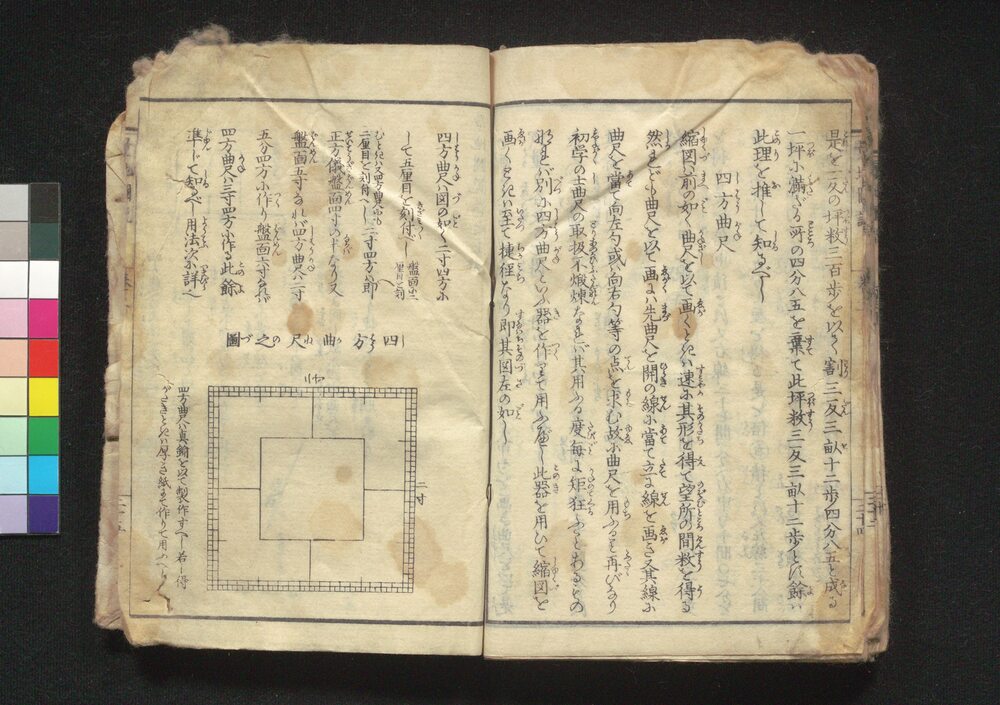 是を一反の坪数三百歩を以て割三反三畝十二歩四分八五と成る
一坪に満ざる所の四分八五を棄て此坪数三反三畝十二歩とす餘ハ
此理を推して知るべし
四方曲尺
縮図ハ前の如く曲尺を以て画くときハ速に其形を得て望所の間数を得る
然れども曲尺を以て画にハ先曲尺を開の線に當て立る線を画き又其線に
曲尺を當て向左勾或ハ向右勾等の点を求む故に曲尺を用ふること再びなり
初学の士曲尺の取扱不煅煉なれバ其用ふる度毎に矩狂ふことあるものなり
別に四方曲尺といふ器を作りて用ふべし此器を用ひて縮図を
画くときハ至て捷径なり即其図左の如し
四方曲尺ハ図の如く二寸四方に
して五厘目を刻付べし
盤面に二厘目を刻
二厘目を刻付べし二寸四方ハ即
正方儀盤面四寸の半なり又
盤面五寸なれバ四方曲尺ハ二寸
五分四方に作り盤面六寸なれバ
四方曲尺ハ三寸四方に作る此餘
準じて知るべし用法次に詳へ
四方曲尺之圖
二寸
二寸
四方曲尺ハ真鍮を以て製作すべし若し得
がたきときハ厚き紙にて作りて用ふべし